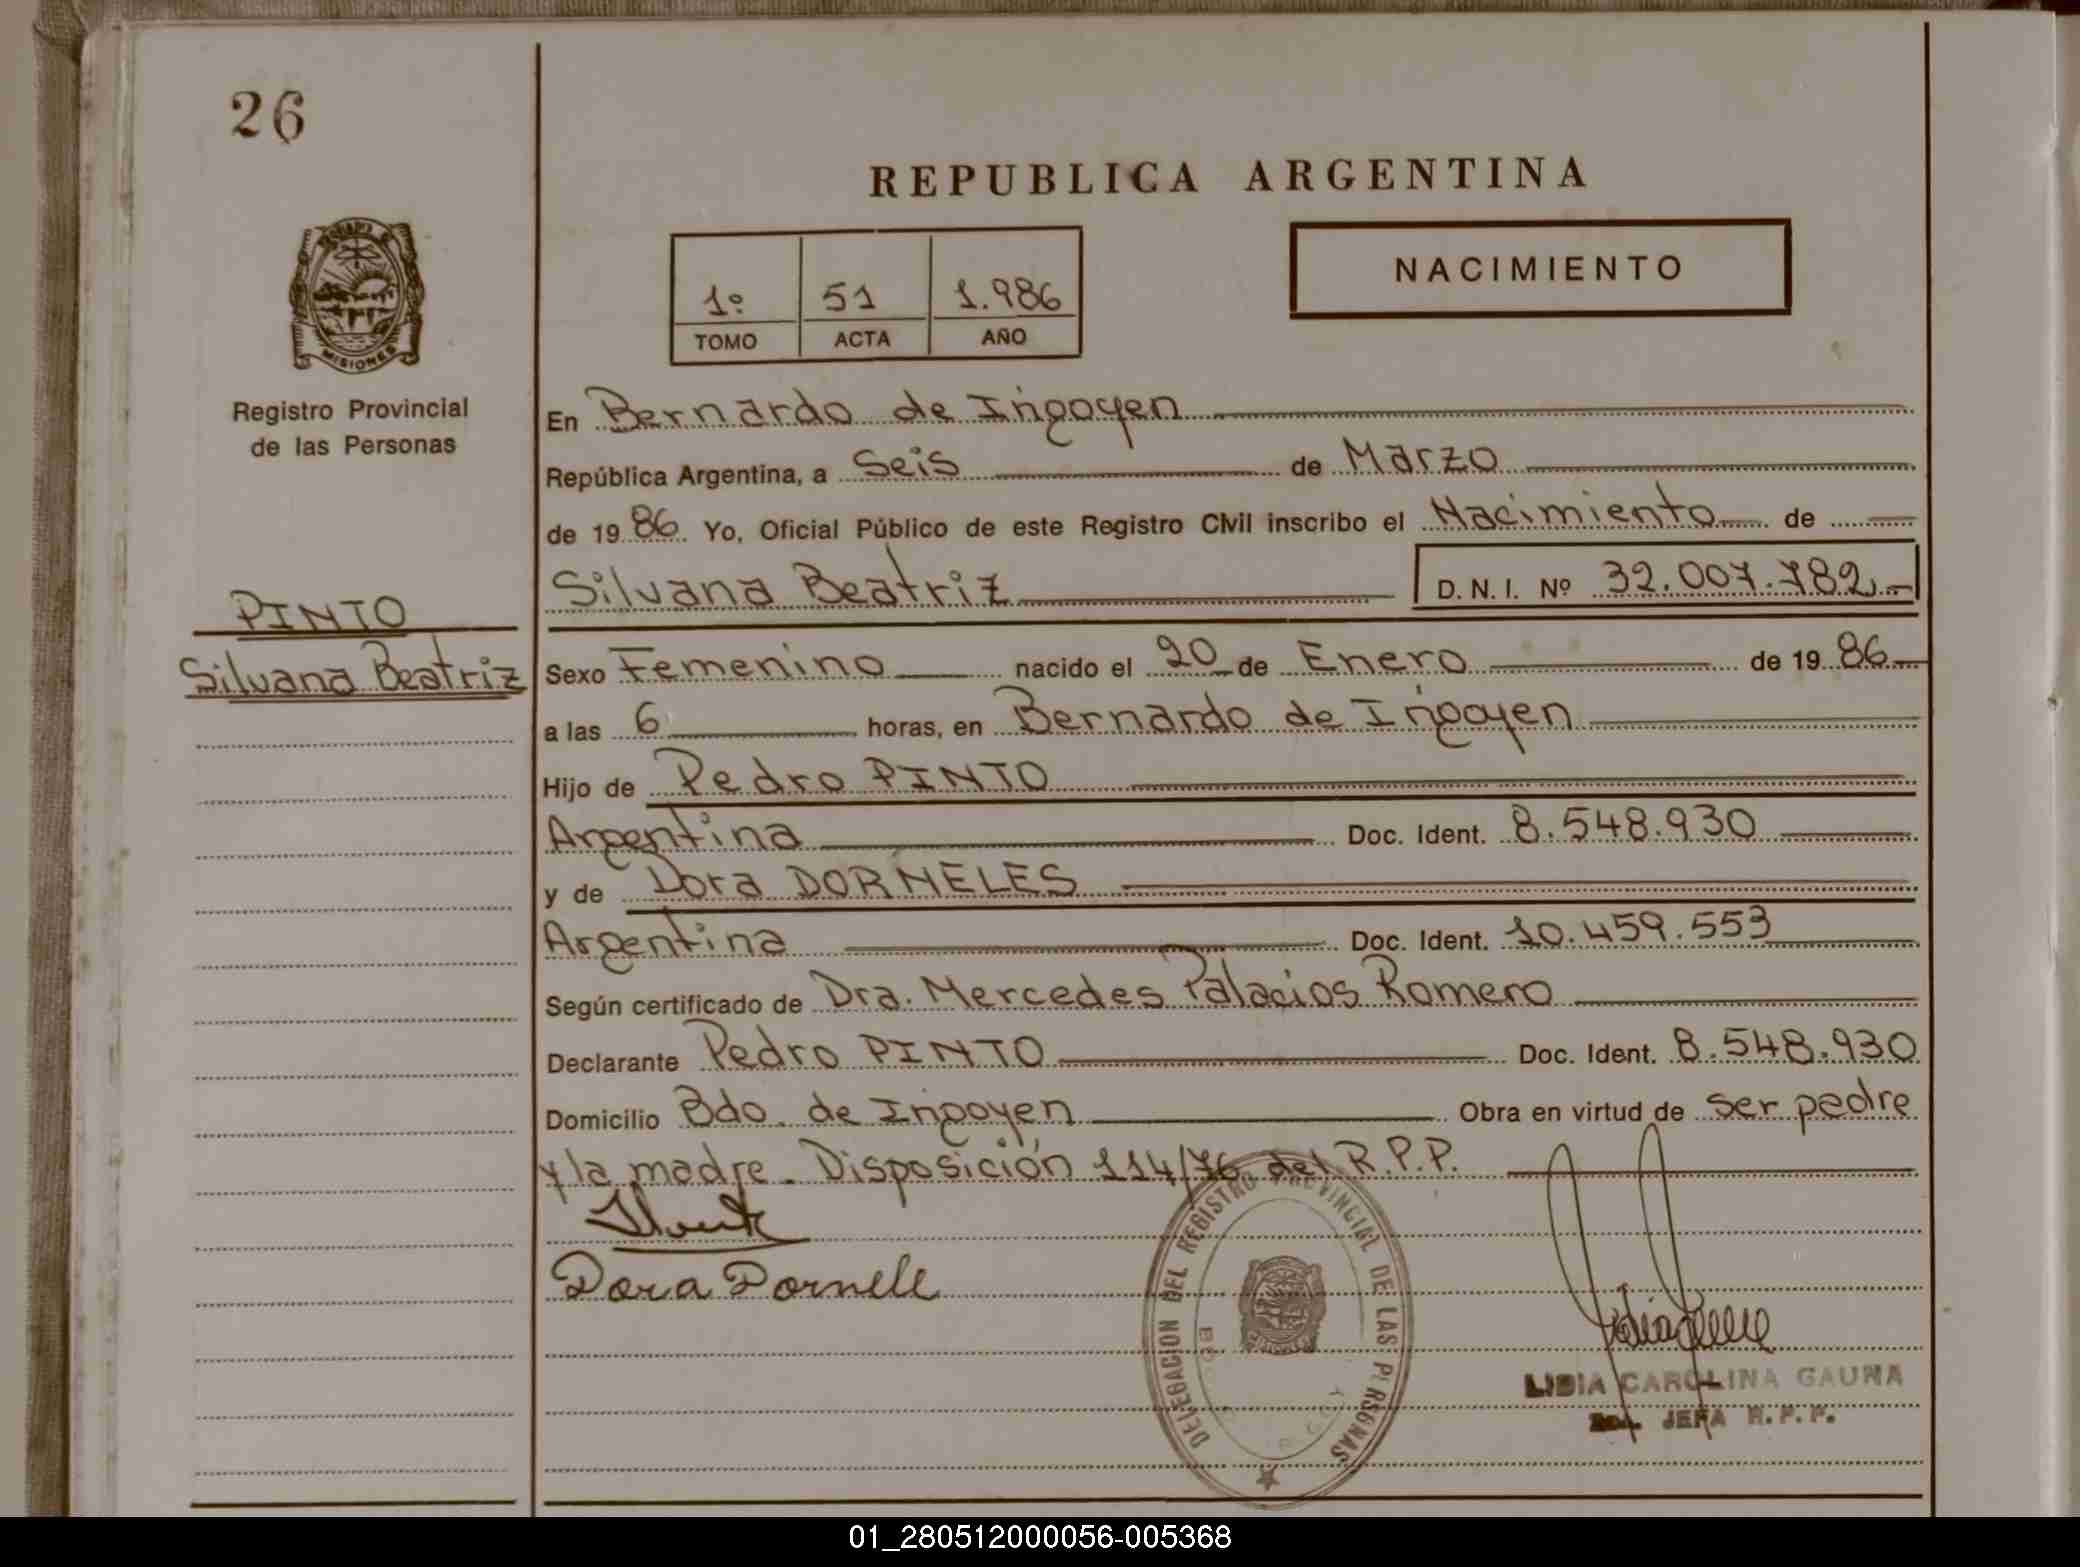 26
REPUBLICA ARGENTINA
NACIMIENTO
1º 51 1.986
TOMO ACTA AÑO
MISIONES
Registro Provincial
de las Personas
PINTO
Silvana Beatriz
En Bernardo de Irigoyen
República Argentina, a Seis de Marzo
de 1986. Yo, Oficial Público de este Registro Civil inscribo el Nacimiento de
Silvana Beatriz D. N. I. Nº 32.007.782.-
Sexo Femenino nacido el 20 de Enero de 1986
a las 6 horas, en Bernardo de Irigoyen
Hijo de Pedro PINTO
Argentina Doc. Ident. 8.548.930
y de Dora DORNELES
Argentina Doc. Ident. 10.459.553
Según certificado de Dra. Mercedes Palacios Romero
Declarante Pedro PINTO Doc. Ident. 8.548.930
Domicilio Bdo. de Irigoyen Obra en virtud de ser padre
y la madre. Disposición 114/76 del R.P.P.
Dora Dornell
DELEGACION DEL REGISTRO PROVINCIAL DE LAS PERSONAS
LIDIA CAROLINA GAUNA
JEFA R. P. P.
01_280512000056-005368